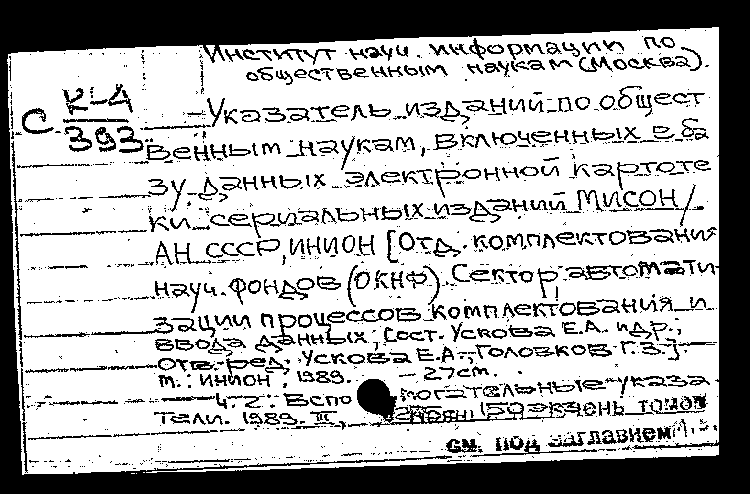 Институт науч. информации по
общественным наукам (Москва).
С К-4
393
Указатель изданий по общест
венным наукам, включенных в ба
зу данных электронной картоте
ки сериальных изданий МИСОН/
АН СССР, ИНИОН [Отд. комплектования
науч. фондов (ОКНФ). Сектор автомати
зации процессов комплектования и
ввода данных; Сост. Ускова Е.А. и др.;
Отв. ред. Ускова Е.А., Головков Г.З.].
М.: ИНИОН, 1989. – 27см.
Ч. 2: Вспомогательные указа
тели. 1989. III,
см. под заглавием